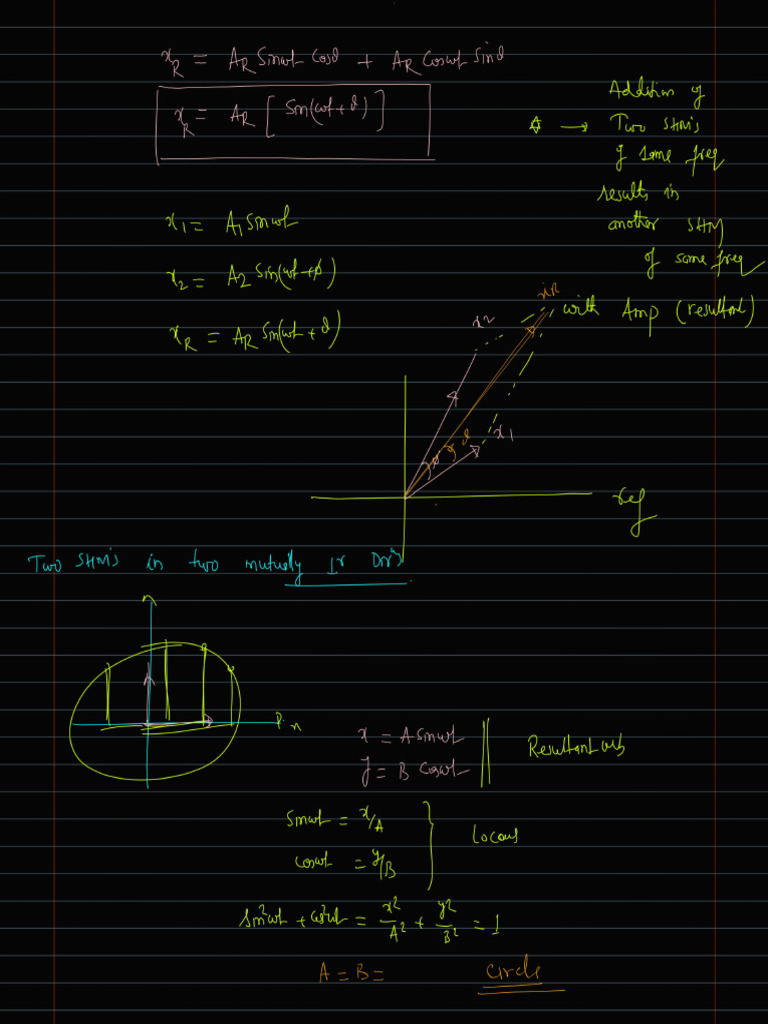 x_R = A_R Sinωt Cosδ + A_R Cosωt Sinδ
x_R = A_R [ Sin(ωt + δ) ]
Addition of
☆ → Two SHM's
of same freq
results in
another SHM
of same freq
with Amp (resultant)
x_1 = A_1 Sinωt
x_2 = A_2 Sin(ωt+ϕ)
x_R = A_R Sin(ωt + δ)
x_R
x_2
x_1
ϕ
δ
ref
Two SHM's in two mutually ⊥r Dirn's
x = A Sinωt
y = B Cosωt
Resultant
Sinωt = x/A
Cosωt = y/B
Locous
Sin²ωt + cos²ωt = x²/A² + y²/B² = 1
A = B =
Circle